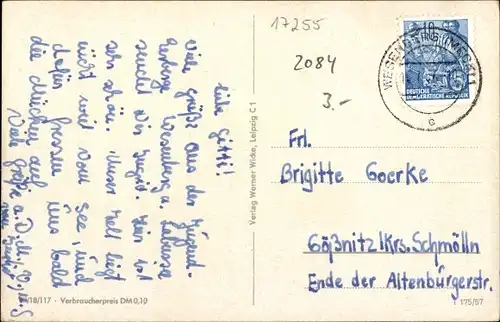 liebe Gitti!
Viele Grüße aus der Jugend-
herberge Wesenberg u. Labussee
sendet Dir Ingrid. Hier ist
sehr schön. Unser Zelt liegt
nicht weit vom See, und
dafür fressen uns bald
die Mücken auf.
Viele Grüße a. D.
17255
2084
3.-
WESENBERG (MECKL)
c
10
5
DEUTSCHE
DEMOKRATISCHE REPUBLIK
Verlag Werner Wicke, Leipzig C 1
Frl.
Brigitte Goerke
Gößnitz/Krs. Schmölln
Ende der Altenburgerstr.
18/117 · Verbraucherpreis DM 0,10
175/57